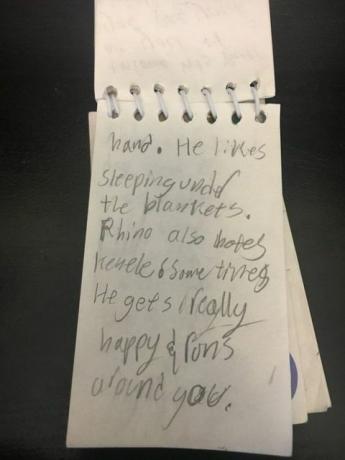 hand. He likes
sleeping undr
the blankets.
Rhino also hates
He gets really
happy & runs
around you.